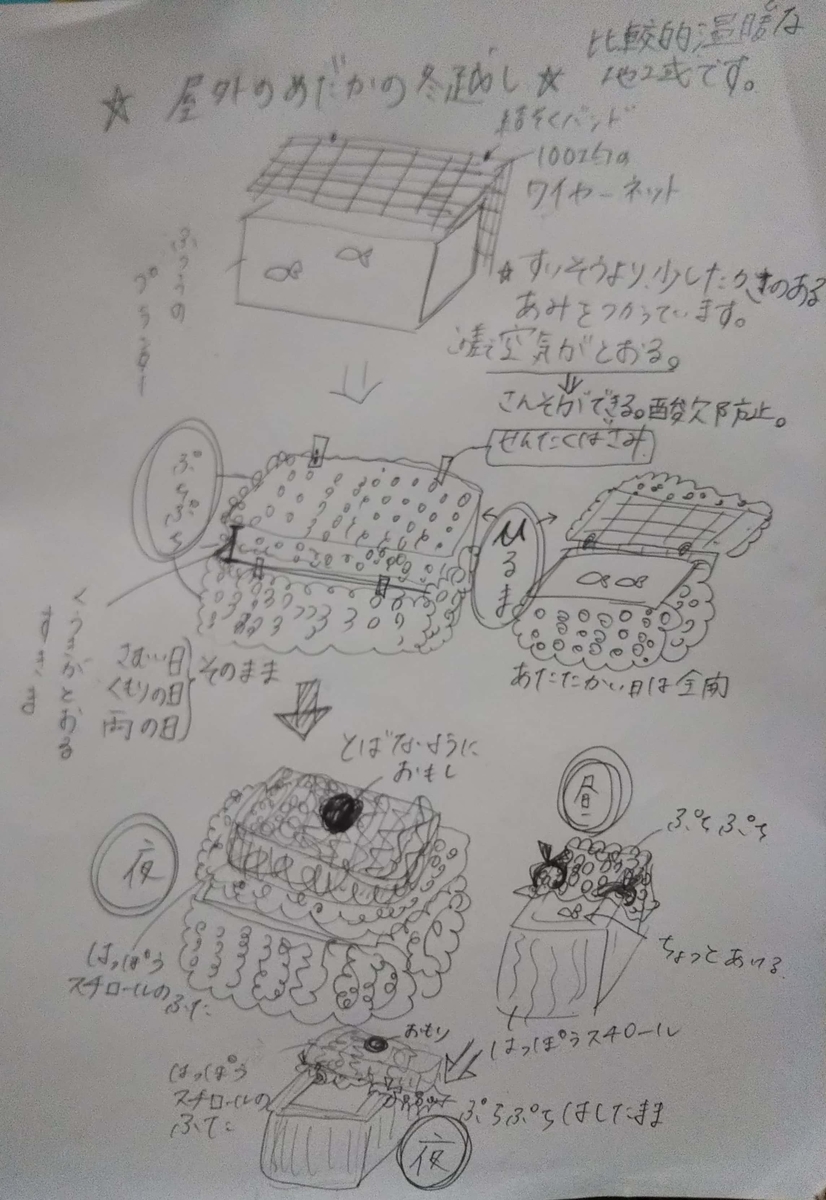 比較的温暖な
地域です。
☆ 屋外のめだかの冬越し ☆
結そくバンド
100均の
ワイヤーネット
ふつうの
プランター
☆ すいそうより、少したかさのある
あみをつかっています。
空気がとおる。
さんそができる。酸欠防止。
せんたくばさみ
ぷちぷち
ひるま
くうきがとおる
すきま
さむい日
くもりの日
雨の日
そのまま
あたたかい日は全開
とばないように
おもし
夜
昼
ぷちぷち
はっぽう
スチロールの
ふた
ちょっとあける
はっぽうスチロール
おもり
はっぽう
スチロールの
ふた
ぷちぷちはしたまま
夜